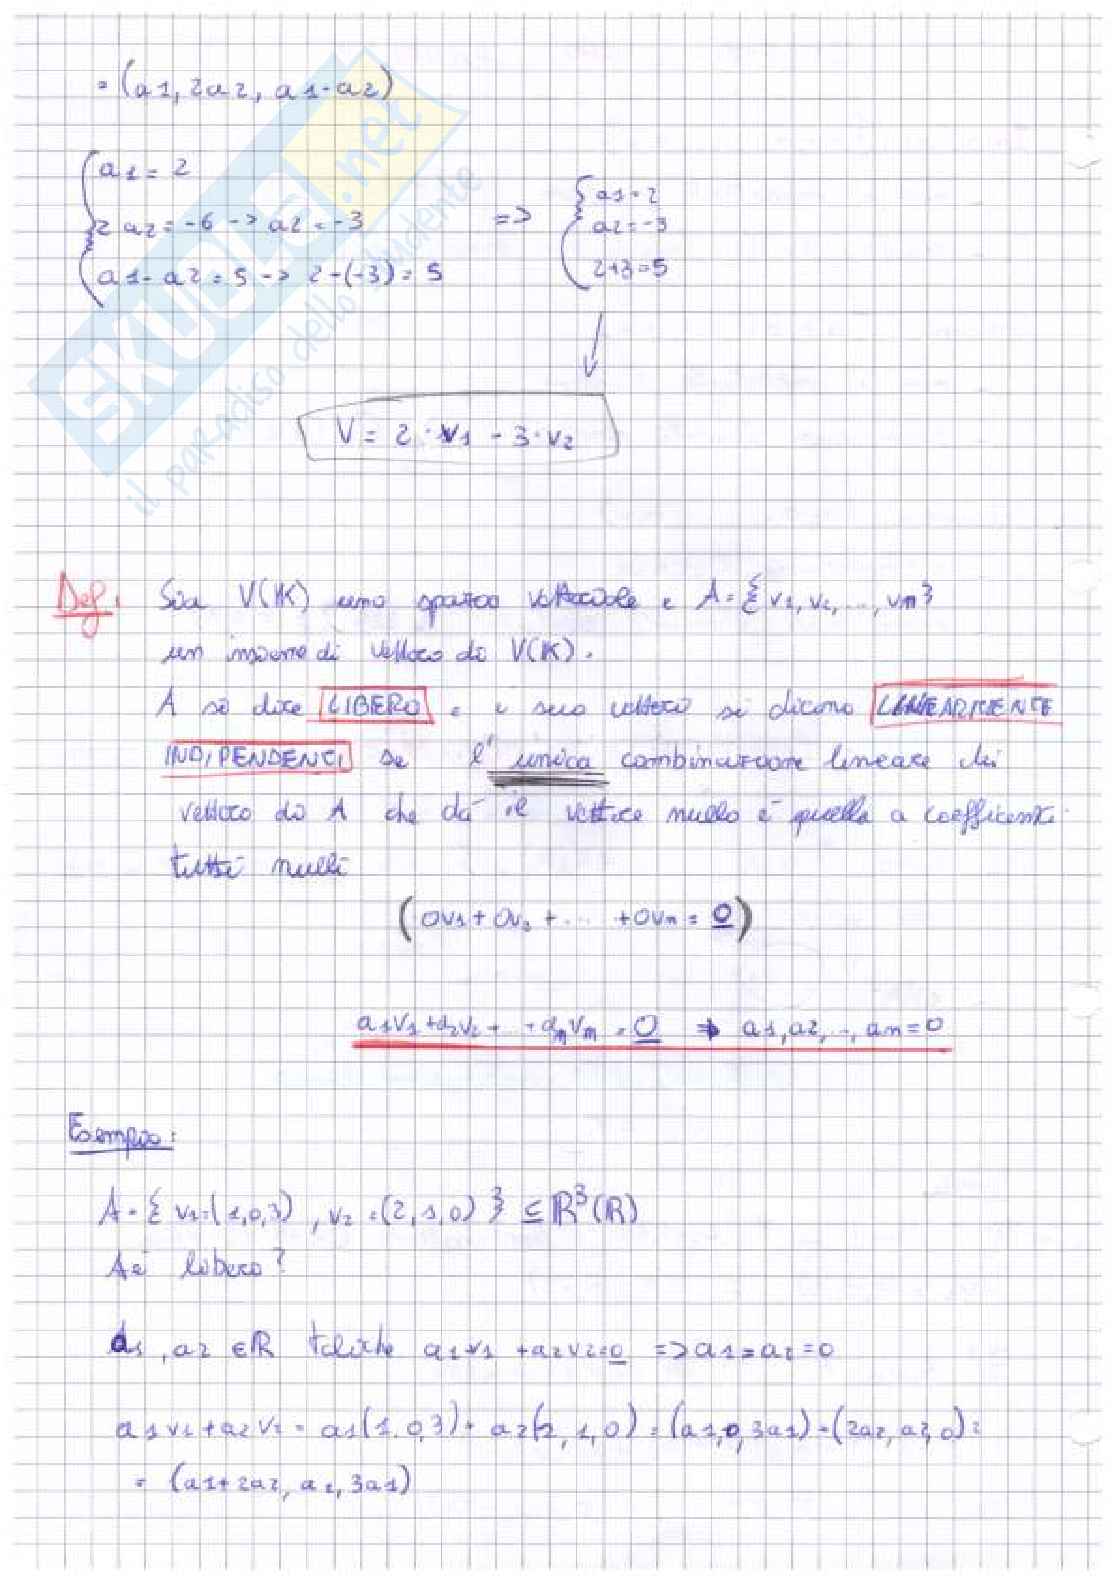 = (a1, 2a2, a1-a2)
a1 = 2
2 a2 = -6 -> a2 = -3 => a1 = 2
a2 = -3
a1 - a2 = 5 -> 2-(-3) = 5 2+3=5
V = 2 · v1 - 3 · v2
Def. Sia V(K) uno spazio vettoriale e A = { v1, v2, ..., vn}
un insieme di vettori di V(K).
A si dice LIBERO e i suoi vettori si dicono LINEARMENTE
INDIPENDENTI se l'unica combinazione lineare dei
vettori di A che dà il vettore nullo è quella a coefficienti
tutti nulli
(0v1 + 0v2 + ... + 0vn = 0)
a1v1 + a2v2 + ... + anvn = 0 => a1, a2, ..., an = 0
Esempio:
A = { v1=(1,0,3), v2 = (2,1,0) } ⊆ R³(R)
A è libero?
a1, a2 ∈ R tali che a1v1 + a2v2=0 => a1 = a2 = 0
a1v1 + a2v2 = a1(1,0,3) + a2(2,1,0) = (a1,0,3a1) + (2a2,a2,0) =
= (a1+2a2, a2, 3a1)
SKUOLA.net
il paradiso dello studente